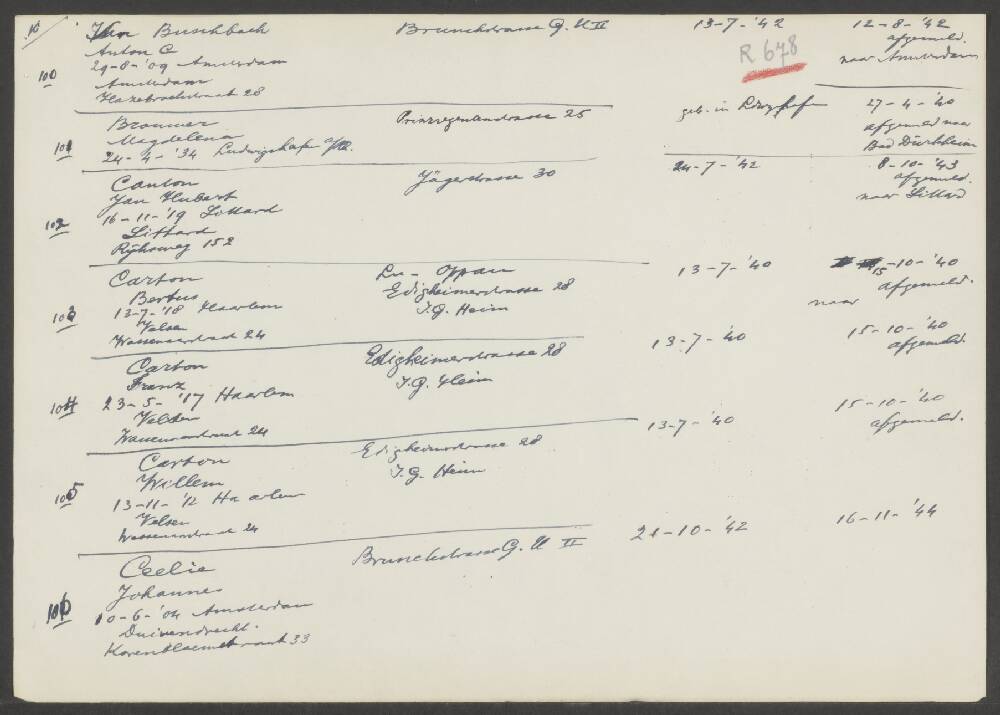 10
Van Buschbach Brunckstrasse G. U II 13-7-'42 12-8-'42
Anton C afgemeld.
R 678
100 29-8-'09 Amsterdam naar Amsterdam
Amsterdam
28
Brouwer Prinzregentenstrasse 25 geb. in 27-4-'40
Magdelena afgemeld naar
101 24-4-'34 Ludwigshafen a/Rh. Bad Dürkheim
Canton Jägerstrasse 30 24-7-'42 8-10-'43
Jan Hubert afgemeld.
102 16-11-'19 Sittard naar Sittard
Sittard
Rijksweg 152
Carton Lu - Oppau 13-7-'40 15-10-'40
Bertus Edigheimerstrasse 28 afgemeld.
103 13-7-'18 Haarlem I.G. Heim naar
Velsen
Wassenaarstraat 24
Carton Edigheimerstrasse 28 13-7-'40 15-10-'40
Franz I.G. Heim afgemeld.
104 23-5-'17 Haarlem
Velsen
Wassenaarstraat 24
Carton Edigheimerstrasse 28 13-7-'40 15-10-'40
Willem I.G. Heim afgemeld.
105 13-11-'12 Haarlem
Velsen
Wassenaarstraat 24
Ceelie Brunckstrasse G. U II 21-10-'42 16-11-'44
Johannes
106 10-6-'04 Amsterdam
Duivendrecht.
Korenbloemstraat 33